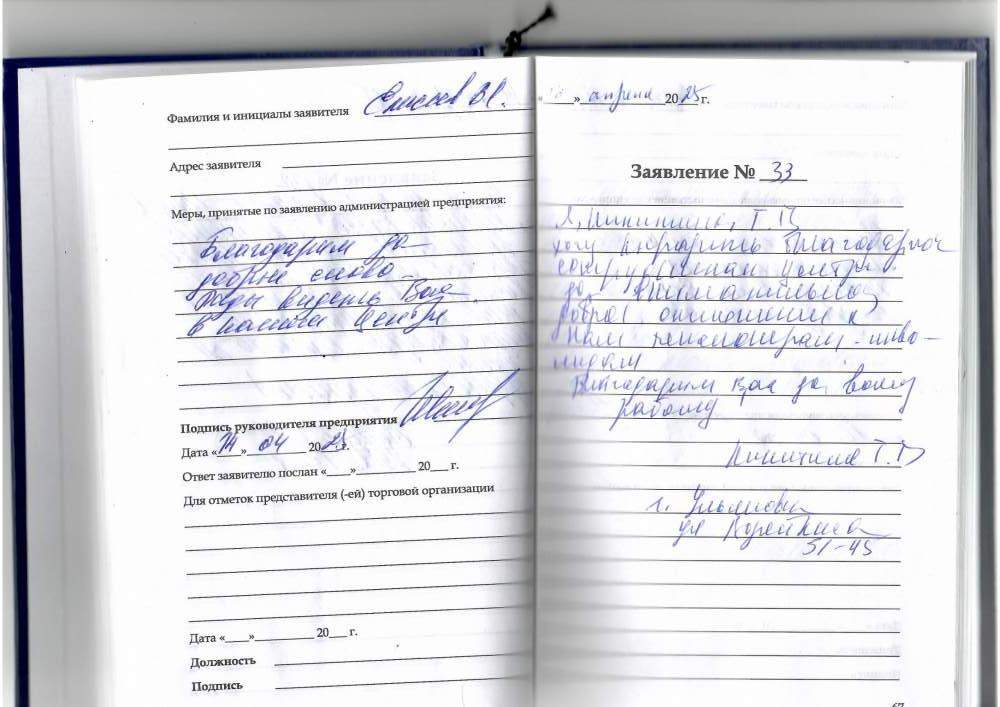 Фамилия и инициалы заявителя Елисеев В.С.
Адрес заявителя
Меры, принятые по заявлению администрацией предприятия:
Благодарим за
добрые слова.
Рады видеть Вас
в нашем Центре
Подпись руководителя предприятия
Дата «14» 04 2025г.
Ответ заявителю послан «___»_________ 20___ г.
Для отметок представителя (-ей) торговой организации
Дата «___»_________ 20___ г.
Должность
Подпись
апреля 2025г.
Заявление № 33
Я, Т.В
хочу выразить благодарность
сотрудникам центра
за внимательное,
доброе отношение к
нам пенсионерам - инва-
лидам
Благодарим Вас за вашу
работу!
Т.В
г. Ульяновск
ул Корюкина
51-45
67